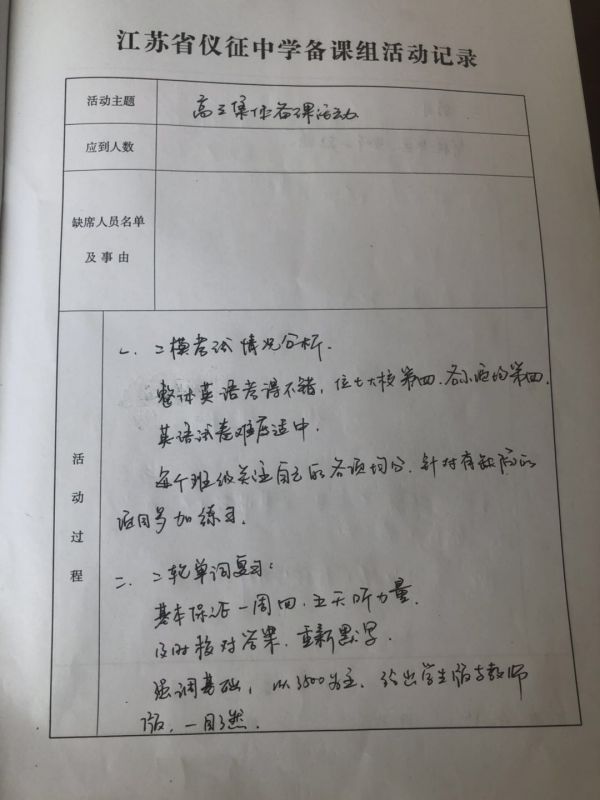 江苏省仪征中学备课组活动记录
活动主题
高三集体备课活动
应到人数
缺席人员名单
及事由
活动过程
一、二模考试情况分析.
整体英语考得不错，位七大校第四.各小题均第四.
英语试卷难度适中.
每个班级关注自己的各项均分.针对有缺陷的
题目多加练习.
二、二轮单词复习：
基本保证一周四、五天听力量.
及时核对答案.重新默写.
强调基础，以3500为主.给出学生版与教师
版，一目了然.